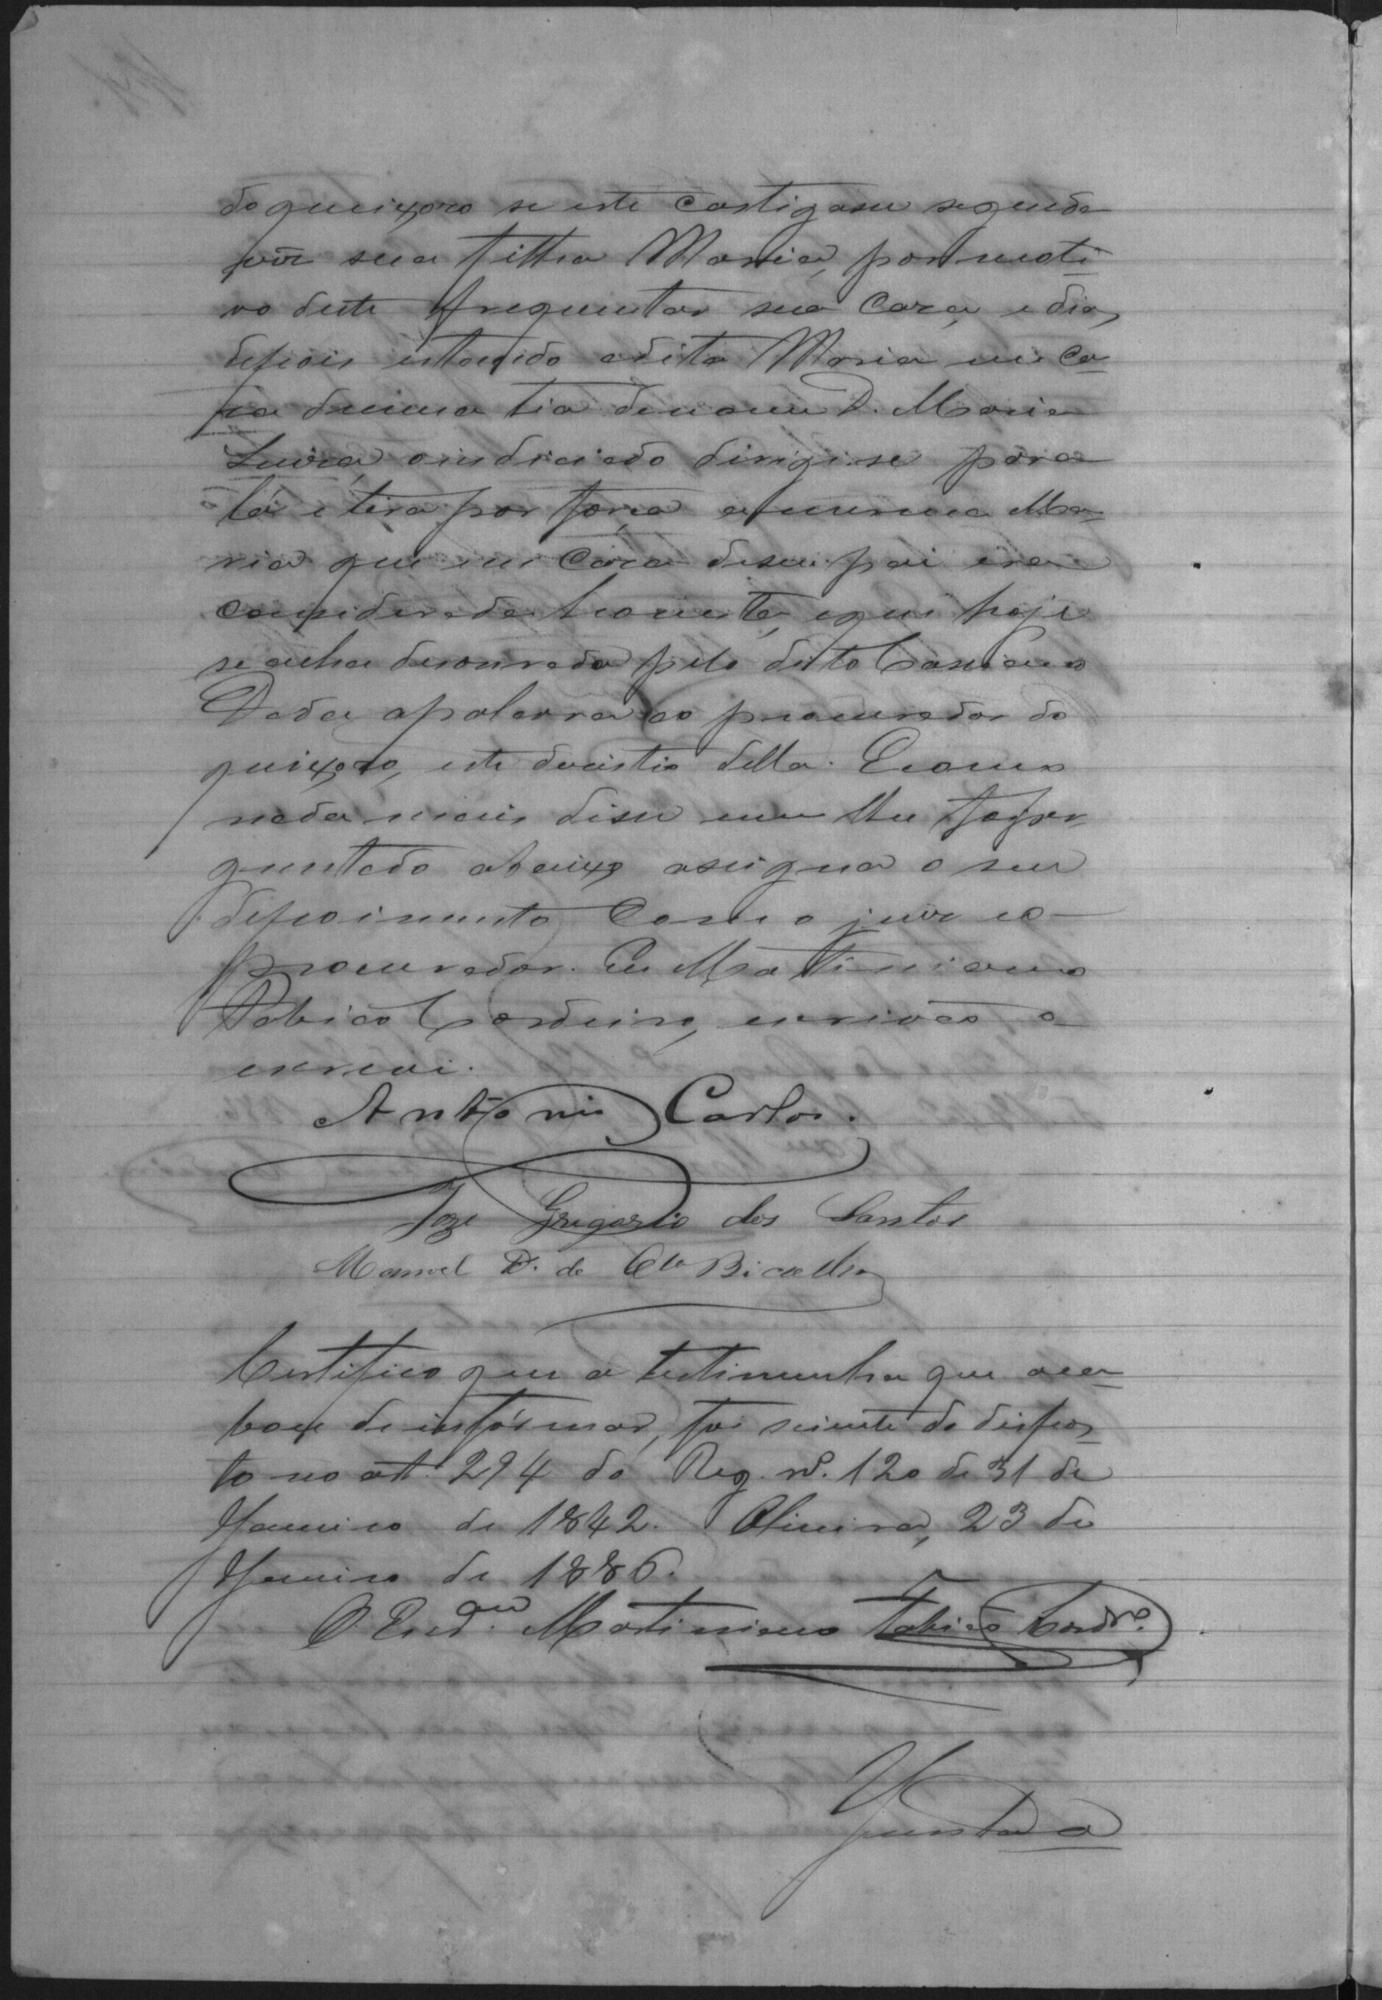 do queixoso se este castigasse segunda
vez sua filha Maria, por moti-
vo deste frequentar sua caza, e dias
depois estando a dita Maria em ca-
za de uma tia de nome D. Maria
Luiza, o indiciado dirigi-se para
lá e tira por força a mesma Ma-
ria que em caza de seu pai era
considerada honesta, e que hoje
se acha desonrada pelo dito Cassiano
Dada a palavra ao procurador do
queixoso, este desistio della. E como
nada mais disse nem lhe foi per-
guntado abaixo assigna o seu
depoimento com o juiz e o
procurador. Eu Martiniano
Fabião Cordeiro, escrivão o
escrevi.
Antonio Carlos.
Joze Gregorio dos Santos
Manoel D. de
Certifico que a testimunha que aca-
bou de informar, foi sciente do dispos-
to no art. 294 do Reg. nº. 120 de 31 de
Janeiro de 1842. Oliveira, 23 de
Janeiro de 1886.
O Escr.am Martiniano Fabião Cordrº.
Juntada